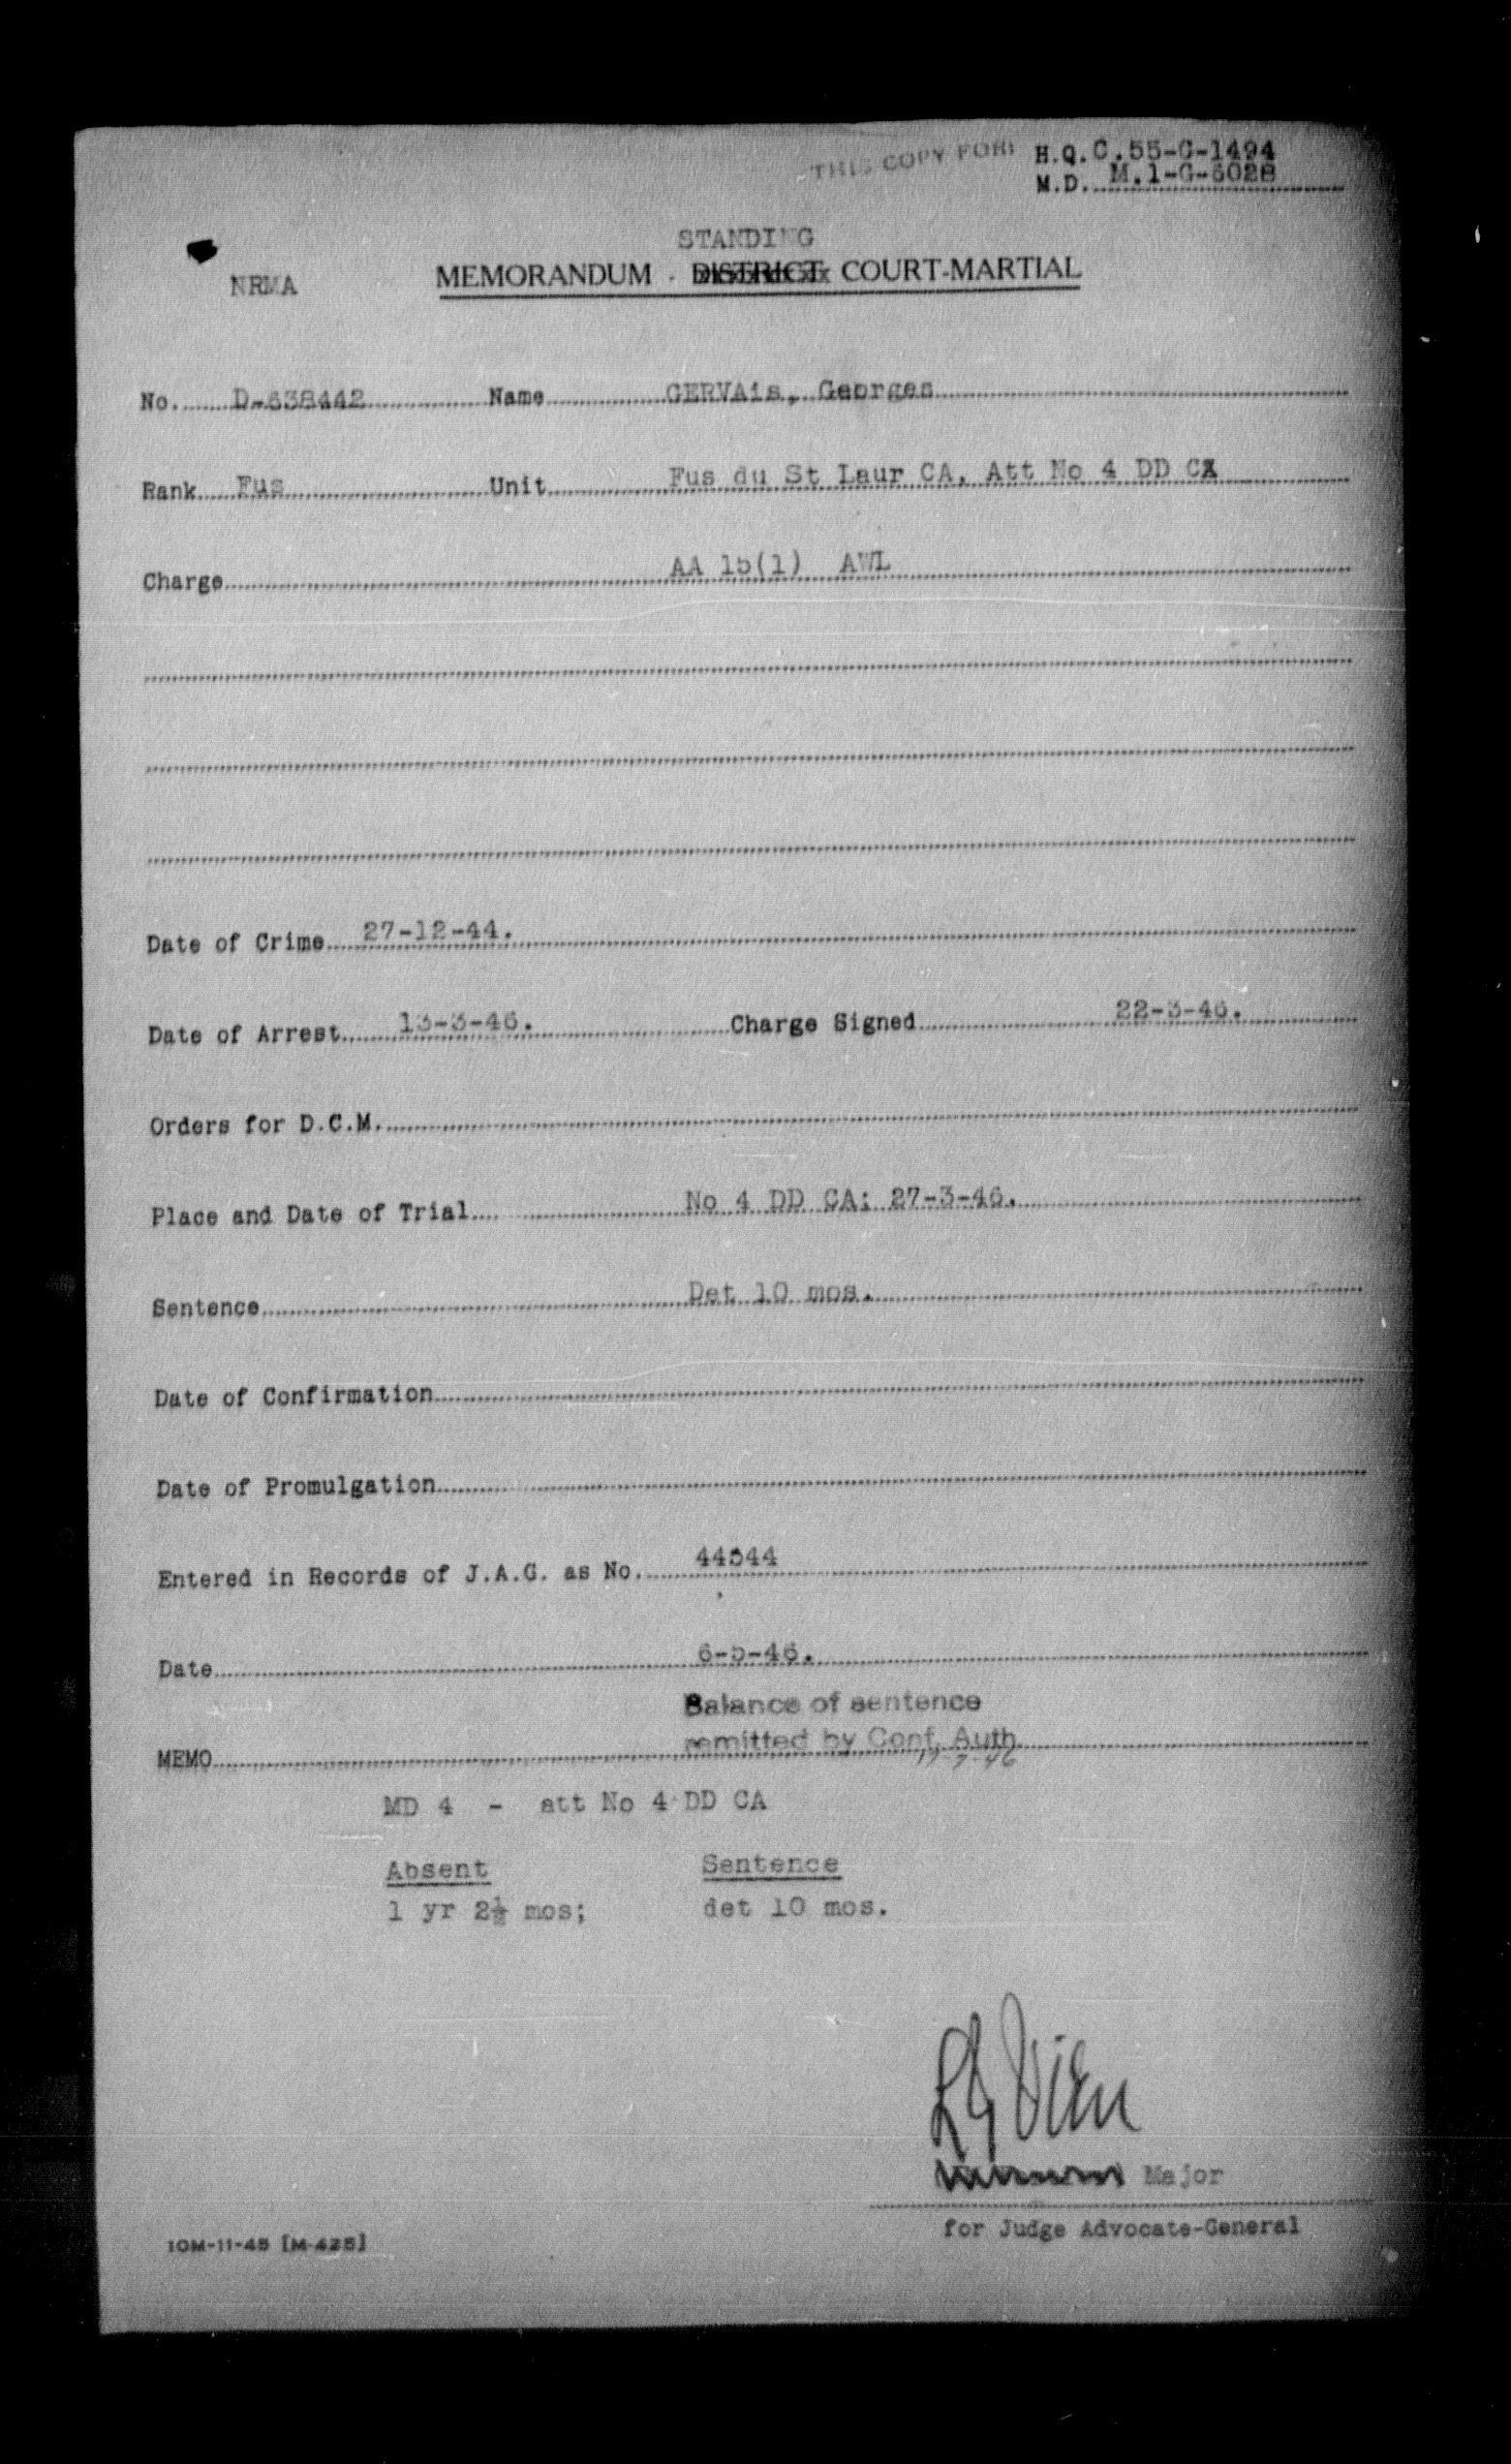 THIS COPY FOR
H.Q. C.55-G-1494
M.D. M.1-G-6028
STANDING
NRMA
MEMORANDUM - DISTRICT COURT-MARTIAL
No. D-638442 Name GERVAis, Georges
Rank Fus Unit Fus du St Laur CA, Att No 4 DD CA
Charge AA 15(1) AWL
Date of Crime 27-12-44.
Date of Arrest 13-3-46. Charge Signed 22-3-46.
Orders for D.C.M.
Place and Date of Trial No 4 DD CA; 27-3-46.
Sentence Det 10 mos.
Date of Confirmation
Date of Promulgation
Entered in Records of J.A.G. as No. 44544
Date 6-5-46.
Balance of sentence
remitted by Conf. Auth.
MEMO
MD 4 - att No 4 DD CA
Absent Sentence
1 yr 2½ mos; det 10 mos.
Major
for Judge Advocate-General
10M-11-45 [M-425]